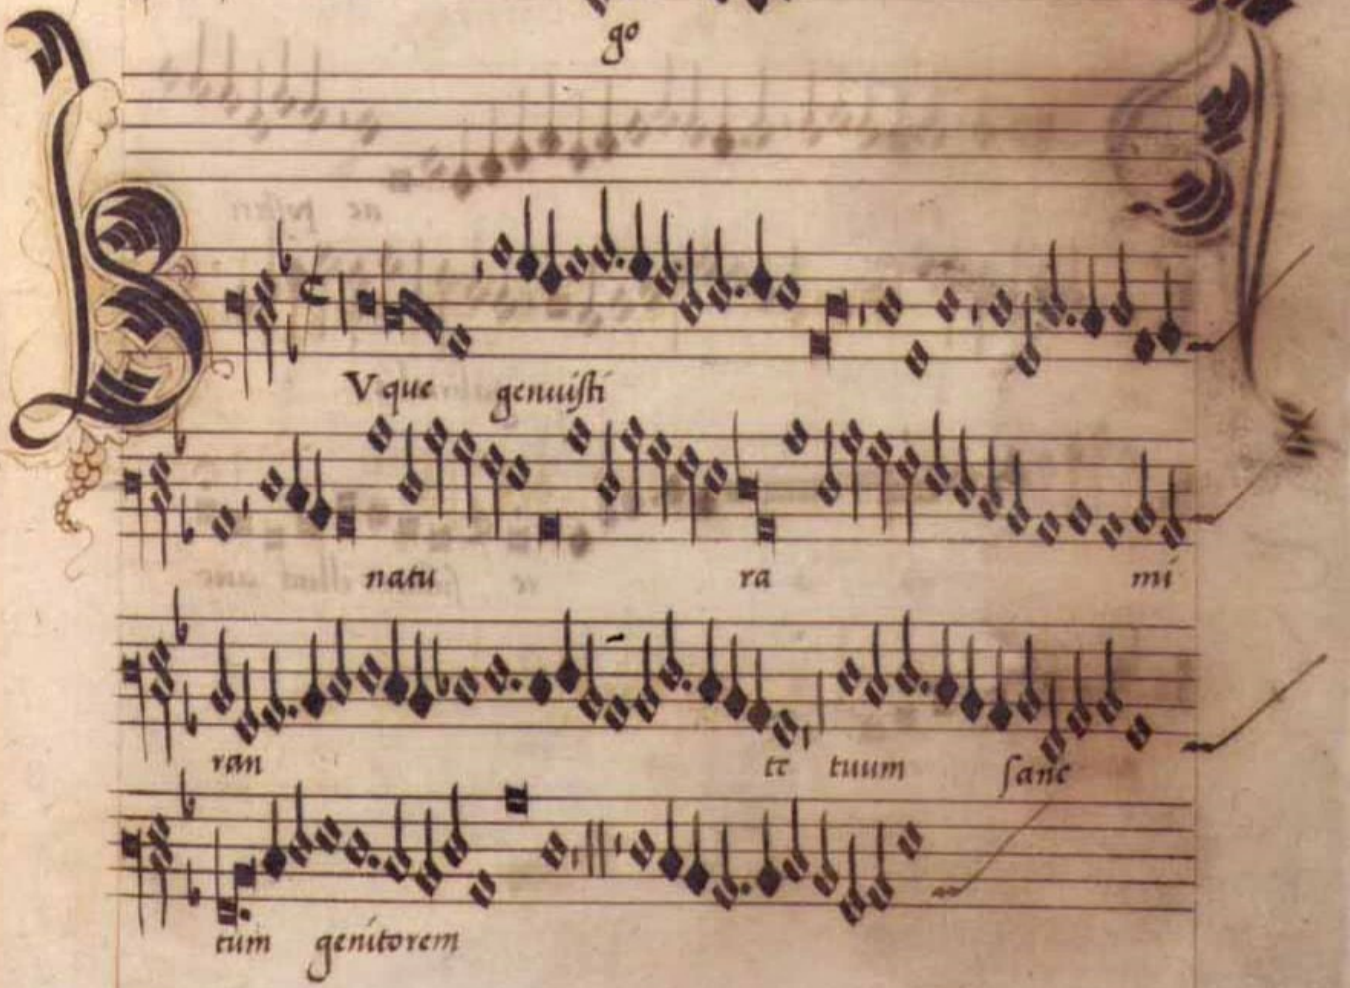 go
Vque genuisti
natu ra mi
ran te tuum sanc
tum genitorem